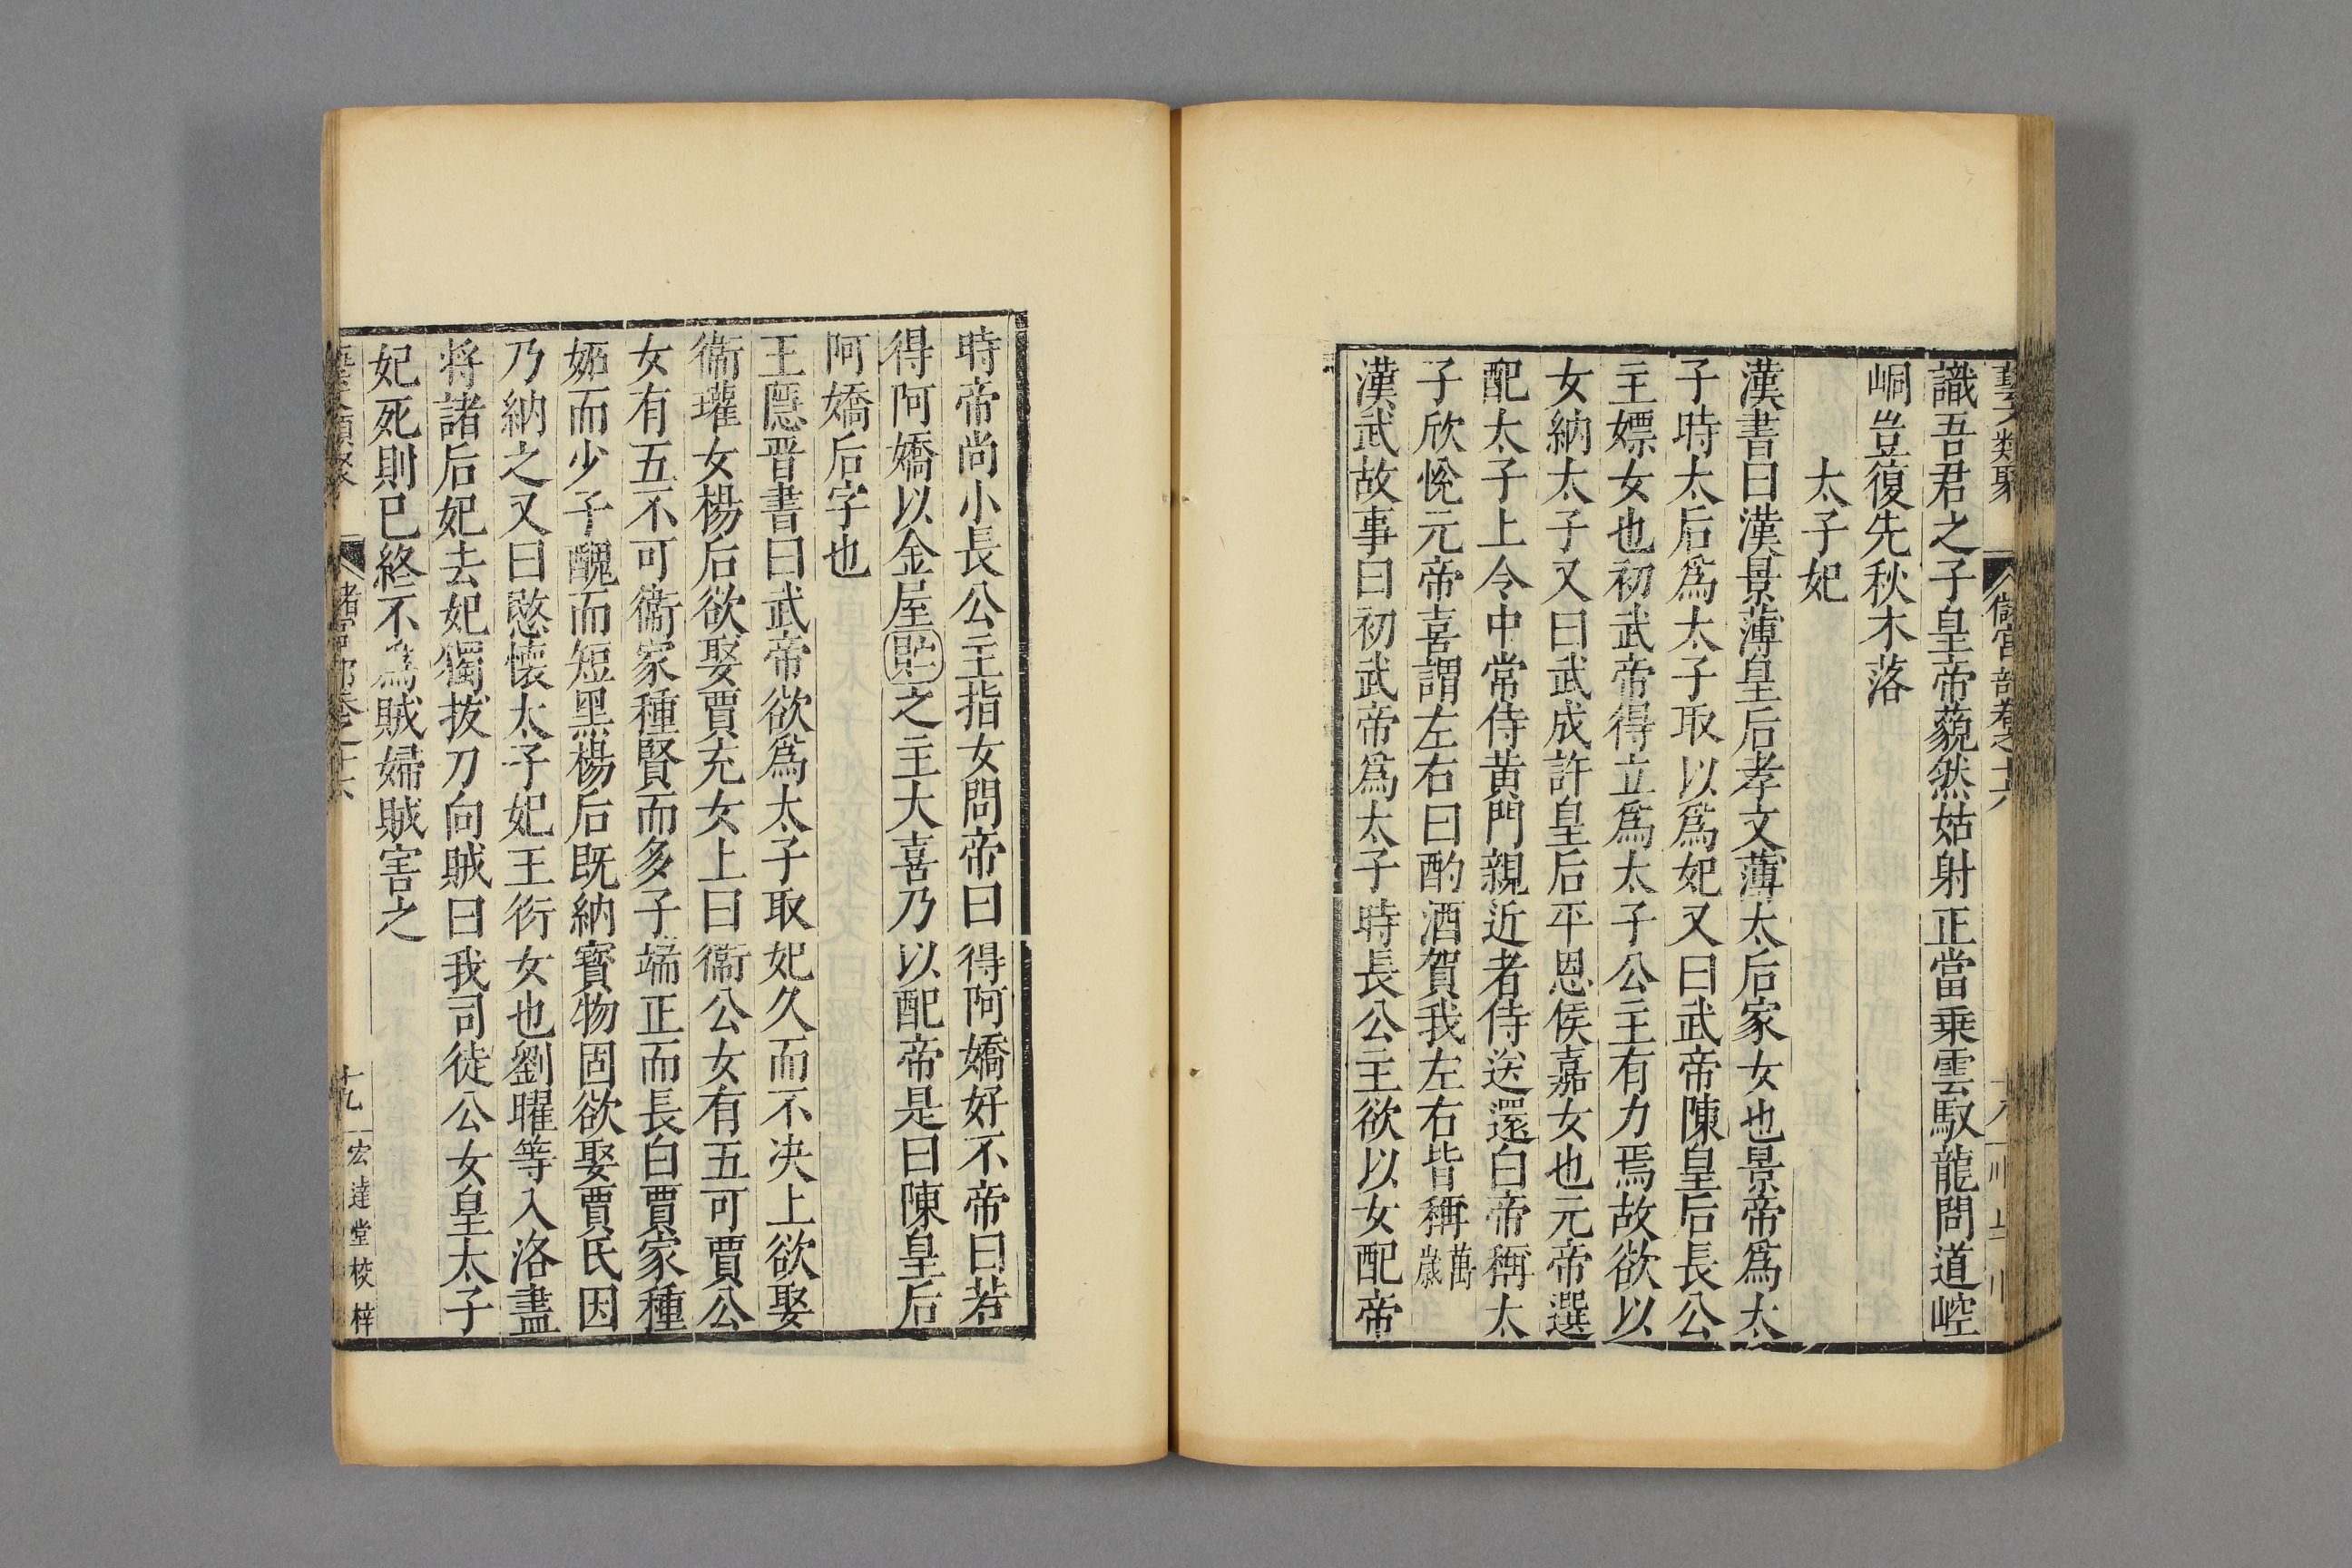 藝文類聚 儲宮部卷之十六
識吾君之子皇帝藐然姑射正當乗雲馭龍問道崆
峒豈復先秋木落
太子妃
漢書曰漢景薄皇后孝文薄太后家女也景帝爲太
子時太后爲太子取以爲妃又曰武帝陳皇后長公
主嫖女也初武帝得立爲太子公主有力焉故欲以
女納太子又曰武成許皇后平恩侯嘉女也元帝選
配太子上令中常侍黄門親近者侍送還白帝稱太
子欣悅元帝喜謂左右曰酌酒賀我左右皆稱萬歲
漢武故事曰初武帝爲太子時長公主欲以女配帝
時帝尚小長公主指女問帝曰得阿嬌好不帝曰若
得阿嬌以金屋貯之主大喜乃以配帝是曰陳皇后
阿嬌后字也
王隱晋書曰武帝欲爲太子取妃久而不决上欲娶
衞瓘女楊后欲娶賈充女上曰衞公女有五可賈公
女有五不可衞家種賢而多子端正而長白賈家種
妬而少子醜而短黑楊后既納寳物固欲娶賈氏因
乃納之又曰愍懷太子妃王衍女也劉曜等入洛盡
将諸后妃去妃獨拔刀向賊曰我司徒公女皇太子
妃死則已終不爲賊婦賊害之
十九 宏達堂校梓